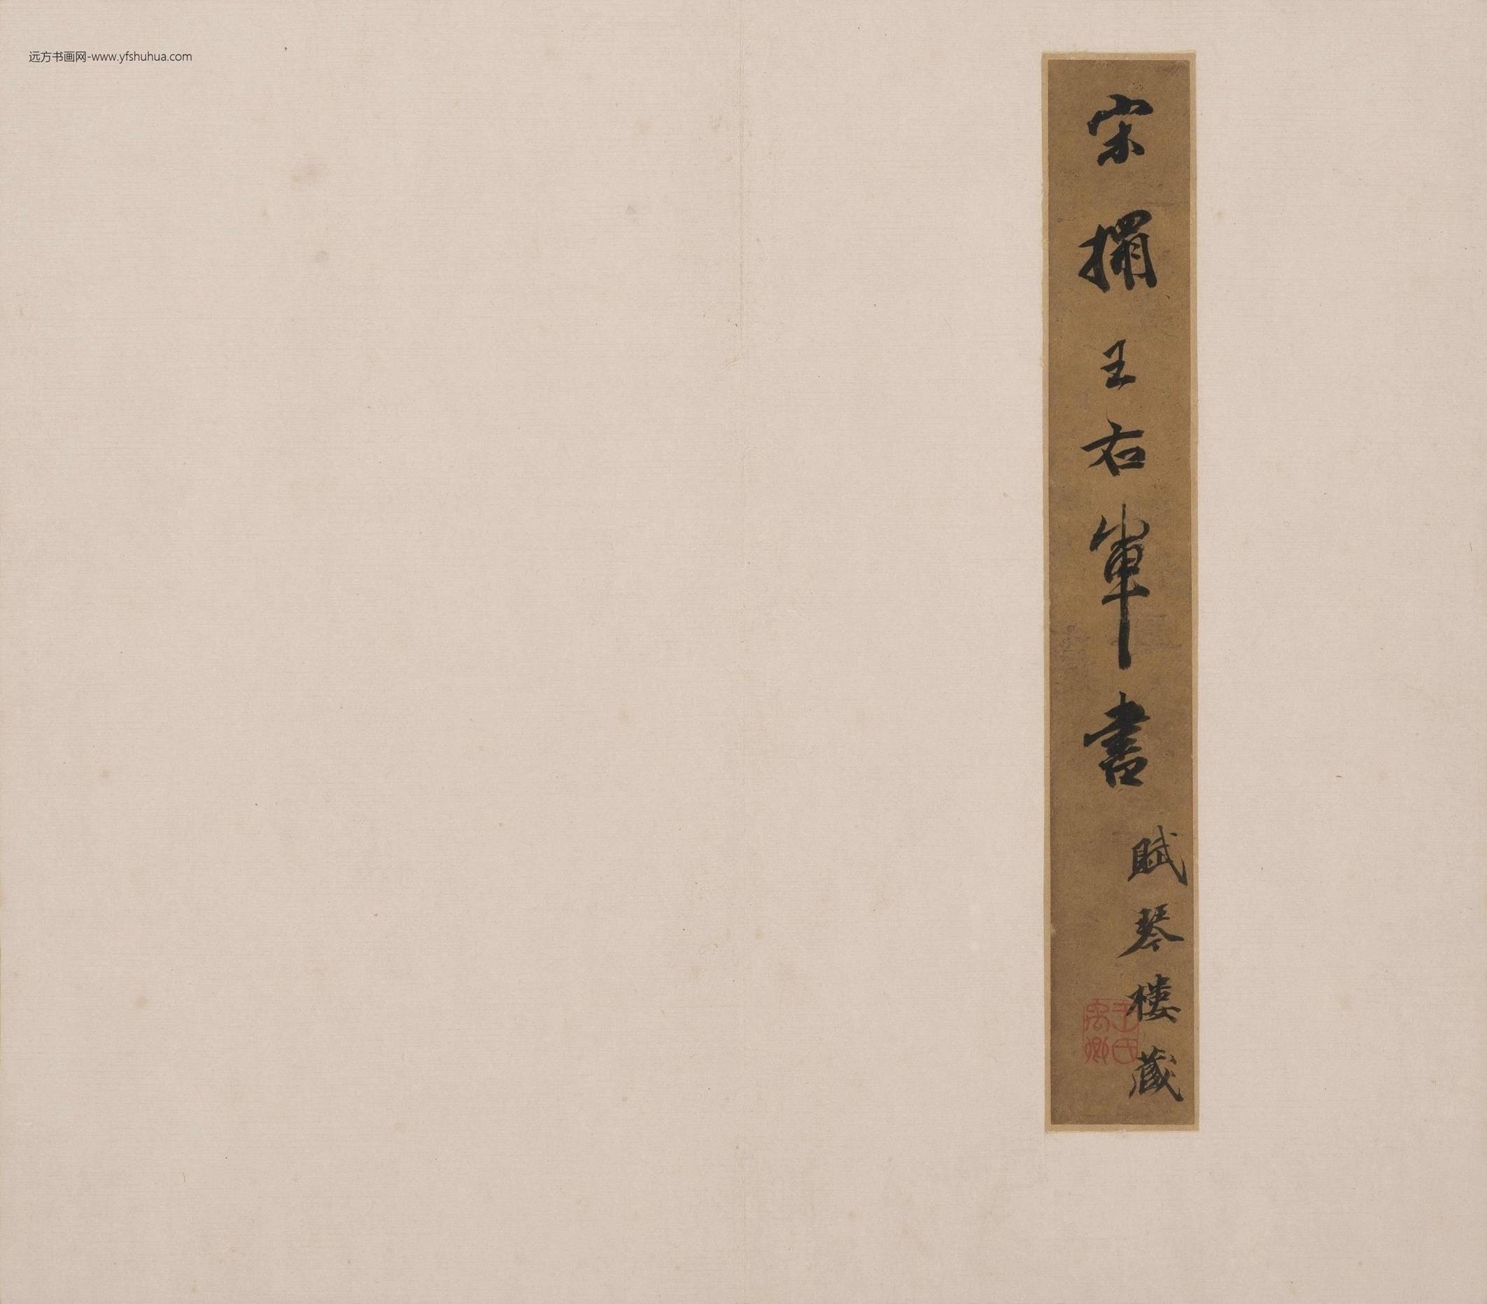 远方书画网-www.yfshuhua.com
宋搨王右軍書
賦琴樓藏
王氏禹卿